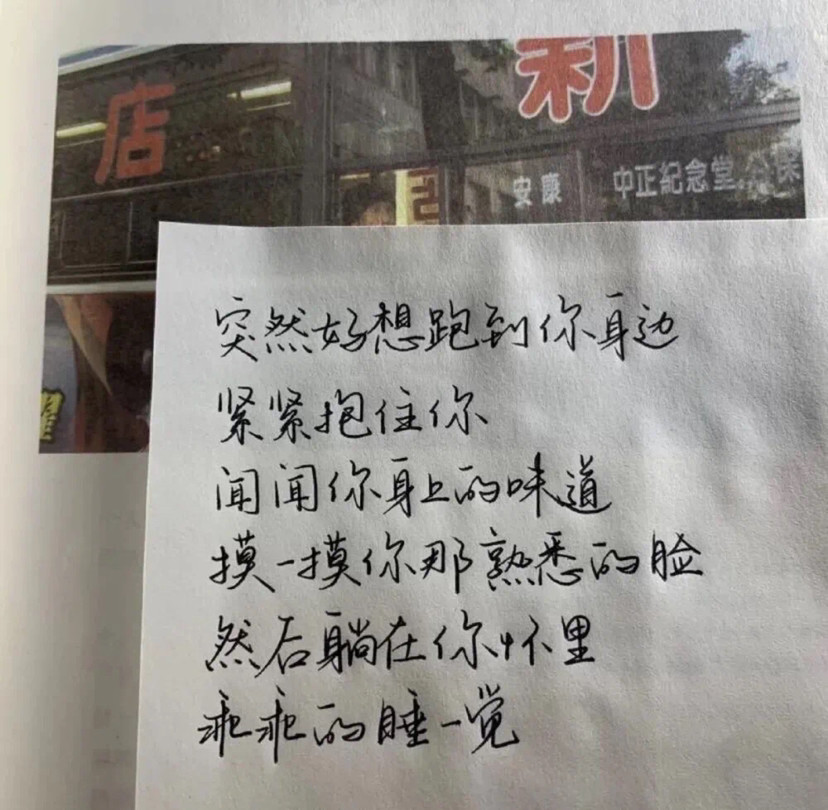 店
新
安康
中正紀念堂
突然好想跑到你身边
紧紧抱住你
闻闻你身上的味道
摸一摸你那熟悉的脸
然后躺在你怀里
乖乖的睡一觉